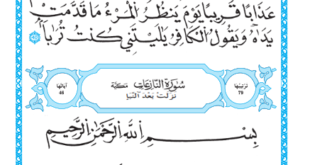 عَذَابًا قَرِيبًا يَوْمَ يَنظُرُ ٱلْمَرْءُ مَا قَدَّمَتْ
يَدَاهُ وَيَقُولُ ٱلْكَافِرُ يَٰلَيْتَنِي كُنتُ تُرَٰبًا
ترتيبها ٧٩ سُورَةُ النَّازِعَاتِ مَكِّيَّة آياتها ٤٦
نزلت بعد النبإ
بِسْمِ ٱللَّهِ ٱلرَّحْمَٰنِ ٱلرَّحِيمِ